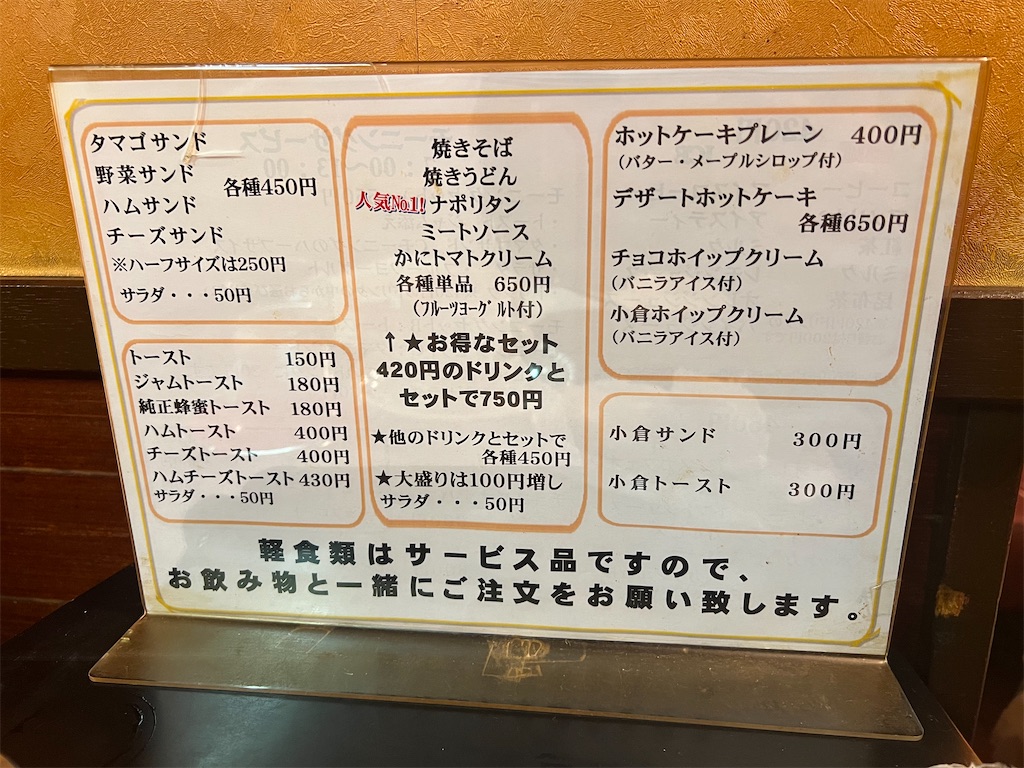 タマゴサンド
野菜サンド
各種450円
ハムサンド
チーズサンド
※ハーフサイズは250円
サラダ・・・50円
トースト 150円
ジャムトースト 180円
純正蜂蜜トースト 180円
ハムトースト 400円
チーズトースト 400円
ハムチーズトースト 430円
サラダ・・・50円
焼きそば
焼きうどん
人気No.1! ナポリタン
ミートソース
かにトマトクリーム
各種単品 650円
(フルーツヨーグルト付)
↑★お得なセット
420円のドリンクと
セットで750円
★他のドリンクとセットで
各種450円
★大盛りは100円増し
サラダ・・・50円
ホットケーキプレーン 400円
(バター・メープルシロップ付)
デザートホットケーキ
各種650円
チョコホイップクリーム
(バニラアイス付)
小倉ホイップクリーム
(バニラアイス付)
小倉サンド 300円
小倉トースト 300円
軽食類はサービス品ですので、
お飲み物と一緒にご注文をお願い致します。